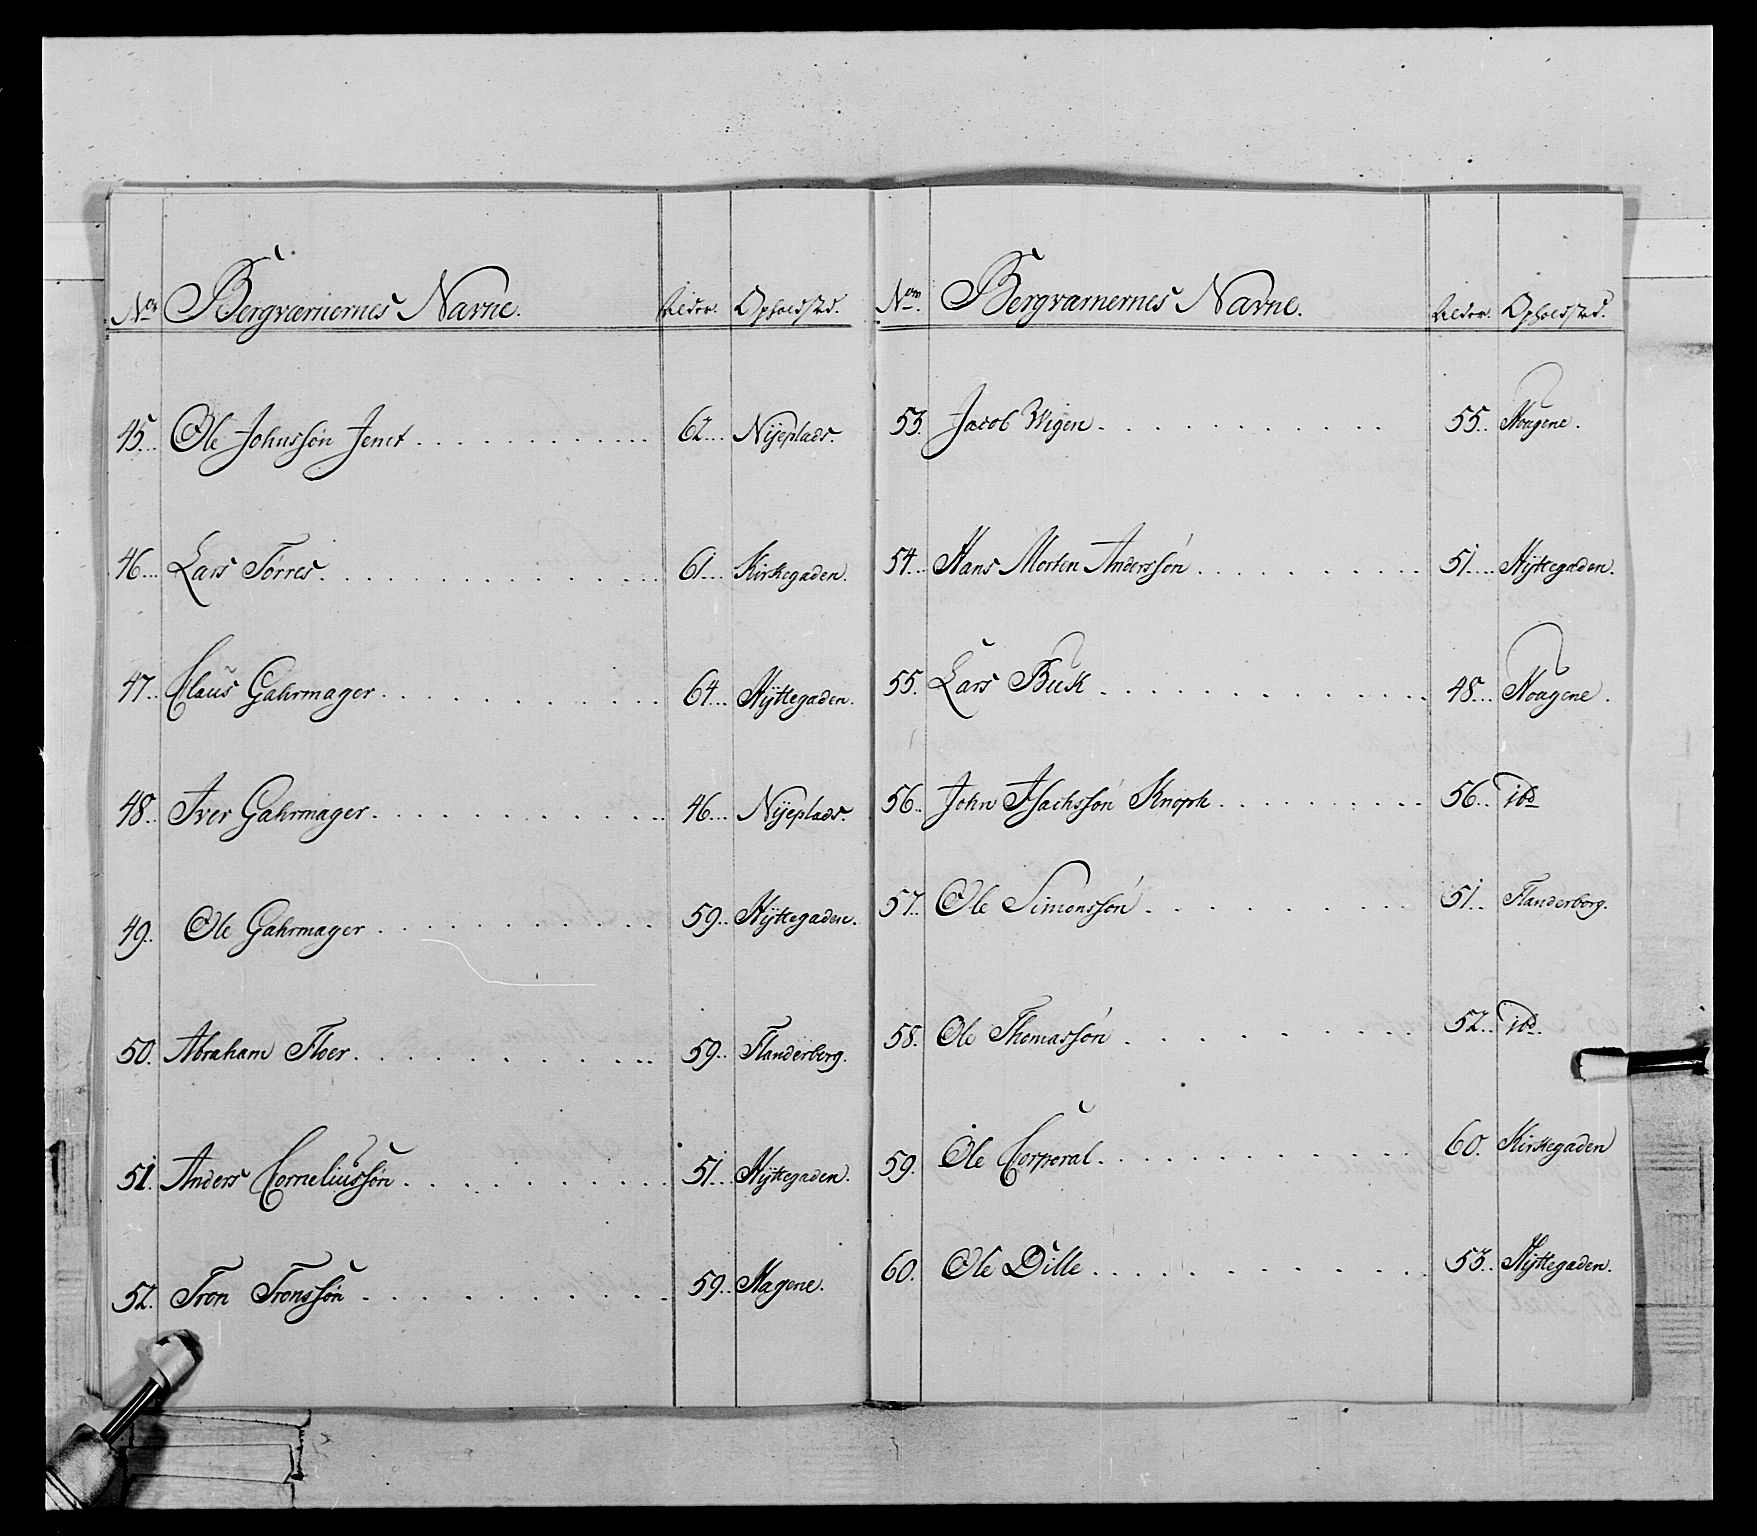 No. Bergværnernes Navne. Alder. Opholdsted.
45. Ole Johnssøn Jemt 62. Nyeplads.
46. Lars Torres. 61. Kirkegaden.
47. Claus Gahrmager. 64. Hyttegaden.
48. Iver Gahrmager. 46. Nyeplads.
49. Ole Gahrmager 59. Hyttegaden.
50. Abraham Floer. 59. Flanderborg.
51. Anders Corneliussøn. 51. Hyttegaden.
52. Tron Tronssøn 59. Hagene.
No. Bergværnernes Navne. Alder. Opholdsted.
53. Jacob Wigen. 55. Hougene.
54. Hans Morten Anderssøn 51. Hyttegaden.
55. Lars Buk 48. Hougene.
56. John Isachssøn Knoph. 56. ibd
57. Ole Simenssøn. 51. Flanderborg.
58. Ole Thomassøn 52. ibd.
59. Ole Corporal. 60. Kirkegaden
60. Ole Dille. 53. Hyttegaden.